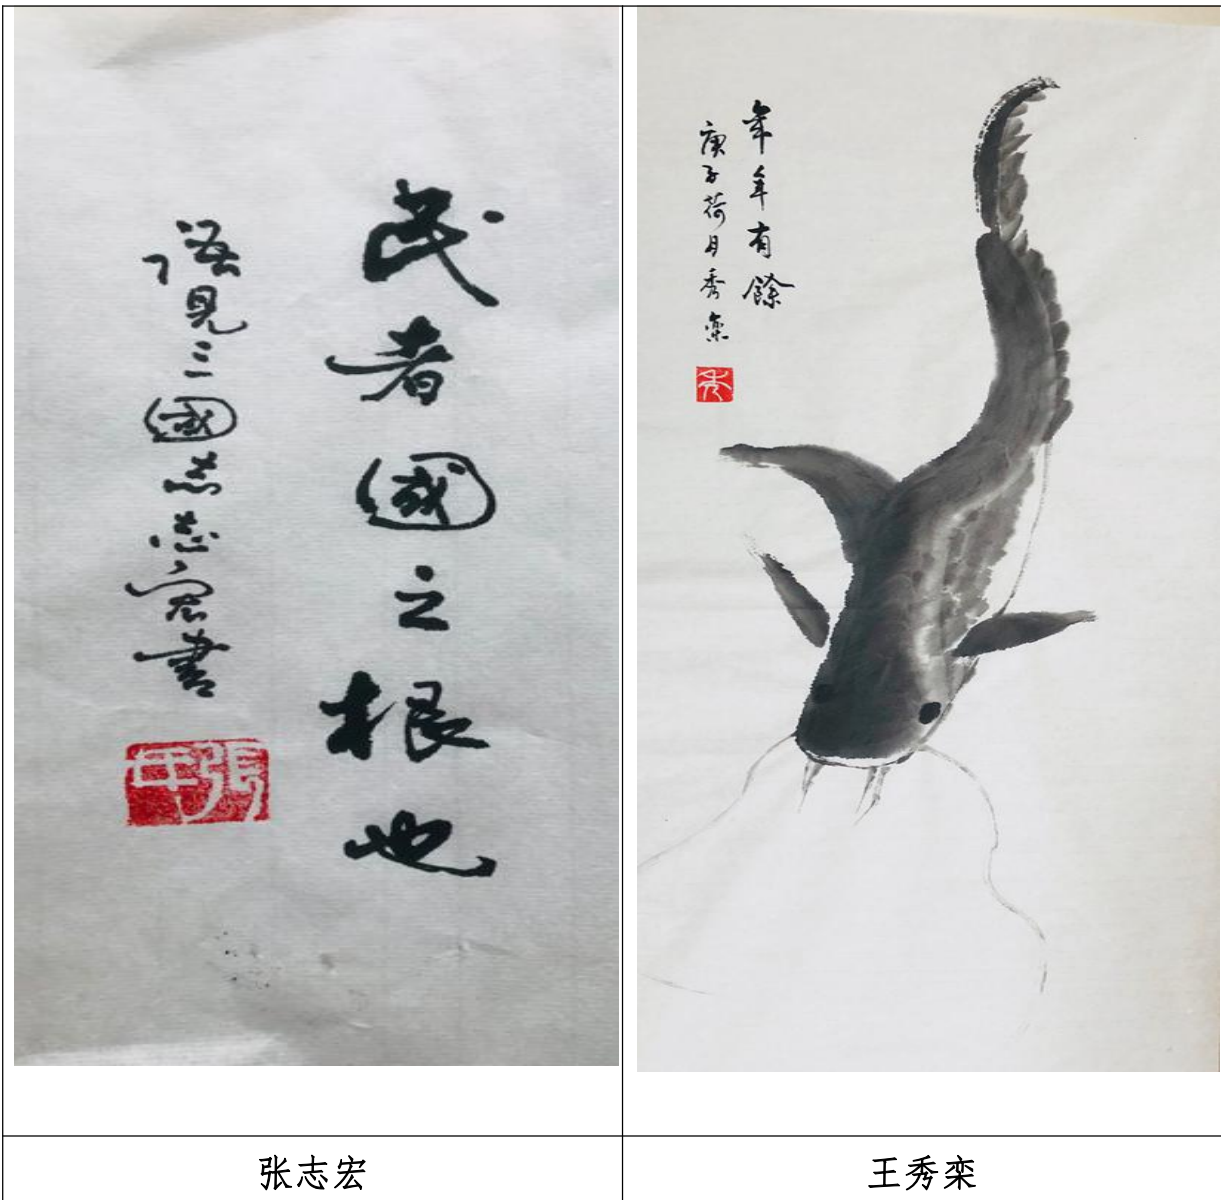 民者國之根也
語見三國志志宏書
張年
年年有餘
庚子荷月秀栾
秀
张志宏
王秀栾